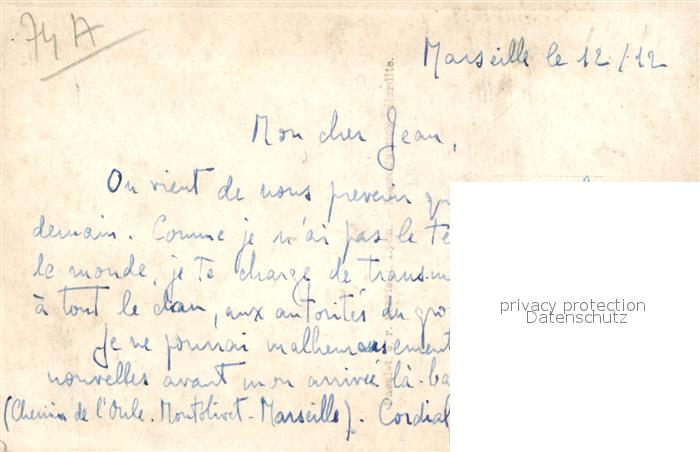 74 A
Marseille le 12/12
Mon cher Jean,
On vient de nous prevenir qu
demain. Comme je n'ai pas le te
le monde, je te charge de transm
à tout le clan, aux autorités du gro
Je ne pourrai malheureusement
nouvelles avant mon arrivée là-ba
(Chemin de l'Oule. Montolivet - Marseille). Cordial
privacy protection
Datenschutz